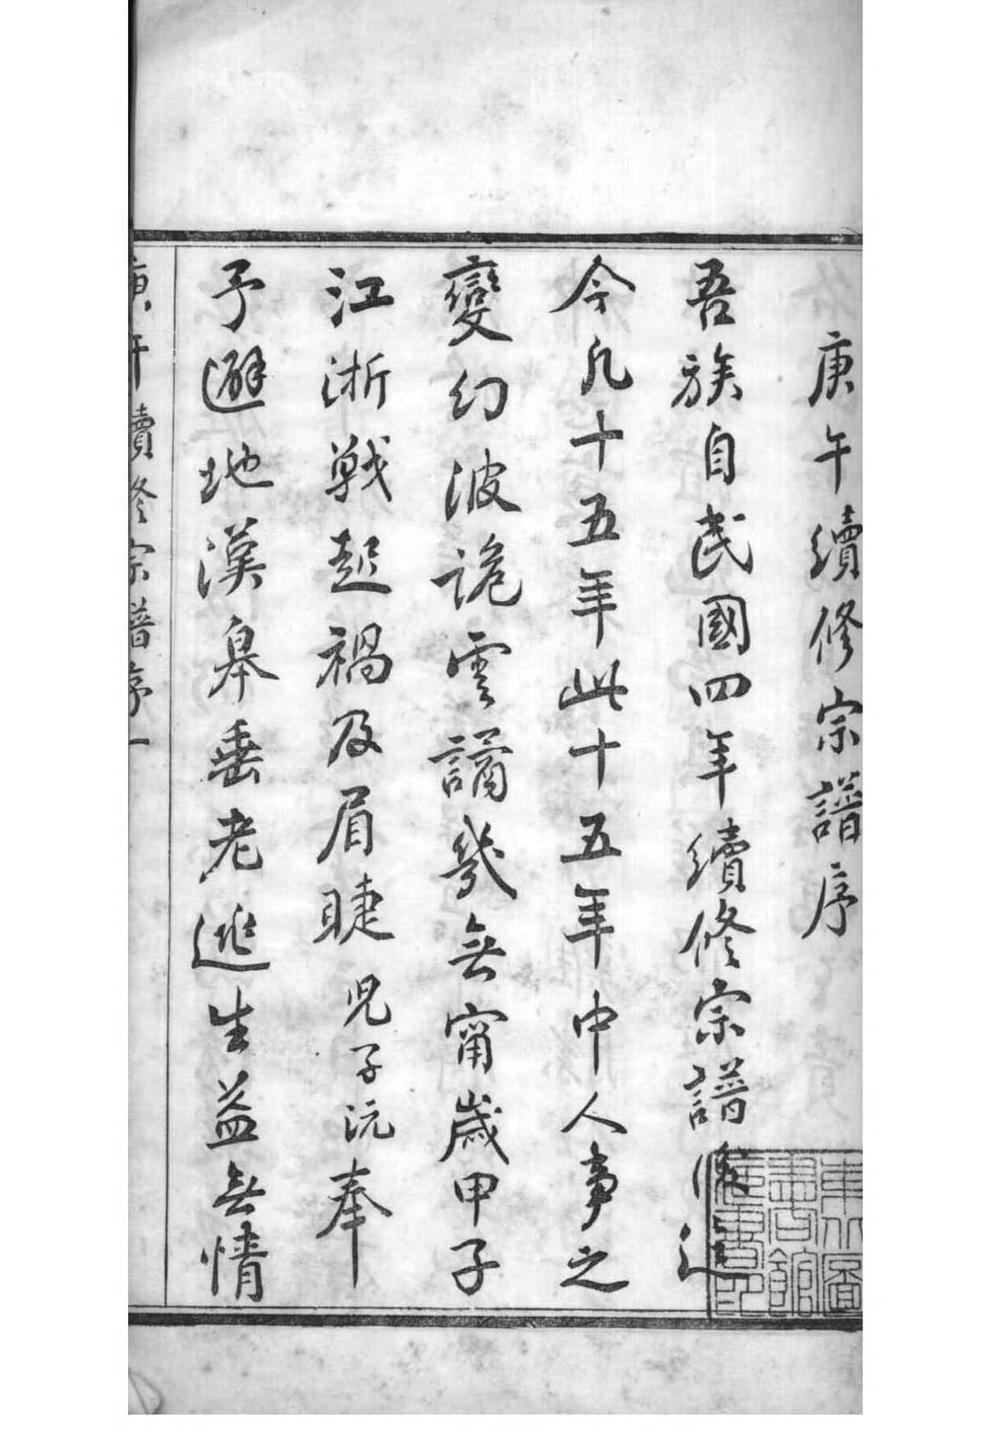 庚午續修宗譜序
吾族自民國四年續修宗譜後迄
今凡十五年此十五年中人事之
變幻波詭雲譎幾無甯歲甲子
江浙戰起禍及眉睫兒子沅奉
予避地漢皋垂老逃生益無情
庚午續修宗譜序一